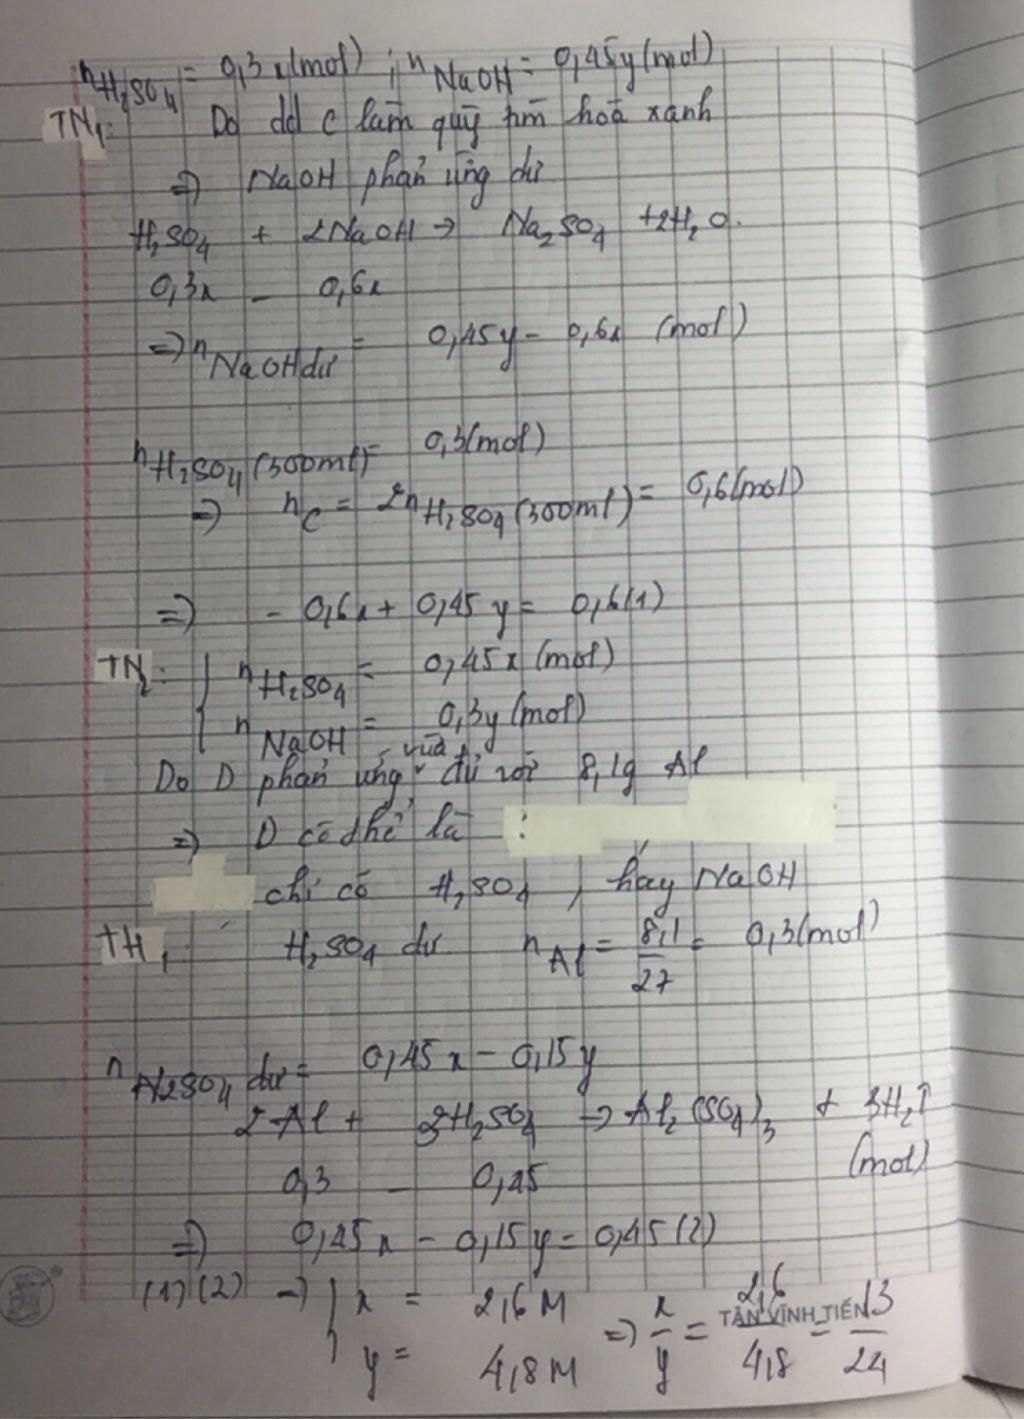 nH₂SO₄ = 0,3x(mol) ; nNaOH = 0,45y(mol)
TN₁: Do dd C làm quỳ tím hoá xanh
=> NaOH phản ứng dư
H₂SO₄ + 2NaOH → Na₂SO₄ + 2H₂O.
0,3x - 0,6x
=> nNaOH dư = 0,45y - 0,6x (mol)
nH₂SO₄(300ml) = 0,3(mol)
=> nC = 2nH₂SO₄(300ml) = 0,6(mol)
=> - 0,6x + 0,45y = 0,6(1)
TN₂: { nH₂SO₄ = 0,45x (mol)
nNaOH = 0,3y (mol)
Do D phản ứng vừa đủ với 8,1g Al
=> D có thể là :
chỉ có H₂SO₄, hay NaOH
TH₁ H₂SO₄ dư nAl = 8,1/27 = 0,3(mol)
nH2SO4 dư = 0,45x - 0,15y
2Al + 3H₂SO₄ → Al₂(SO₄)₃ + 3H₂↑
0,3 - 0,45 (mol)
=> 0,45x - 0,15y = 0,45(2)
(1)(2) → { x = 2,6M => x/y = 2,6/4,8 = 13/24
y = 4,8M
TÂN VĨNH TIẾN